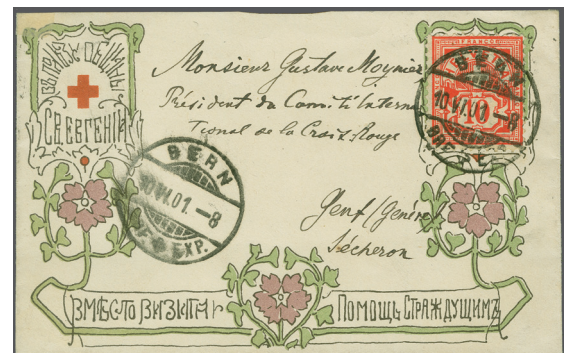 ВЪ ПОЛЬЗУ ОБЩИНЫ
СВ. ЕВГЕНІИ
Monsieur Gustave Moynier
Président du Comité Interna
tional de la Croix Rouge
Genf (Genève)
Sécheron
FRANCO
10
BERN
10.VI.01.-8
BRF. EXP.
BERN
10.VI.01.-8
BRF. EXP.
ВМѢСТО ВИЗИТА
ПОМОЩЬ СТРАЖДУЩИМЪ